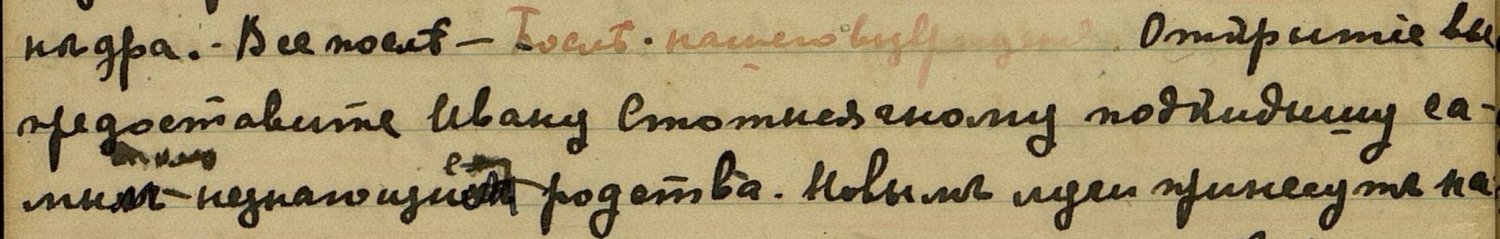 нъдра. - Все послѣ - Послѣ. нашего Открытіе вы
предоставите Ивану Стотысячному подкидышу са-
мымъ незнающи родства. Новымъ люди принесутъ на